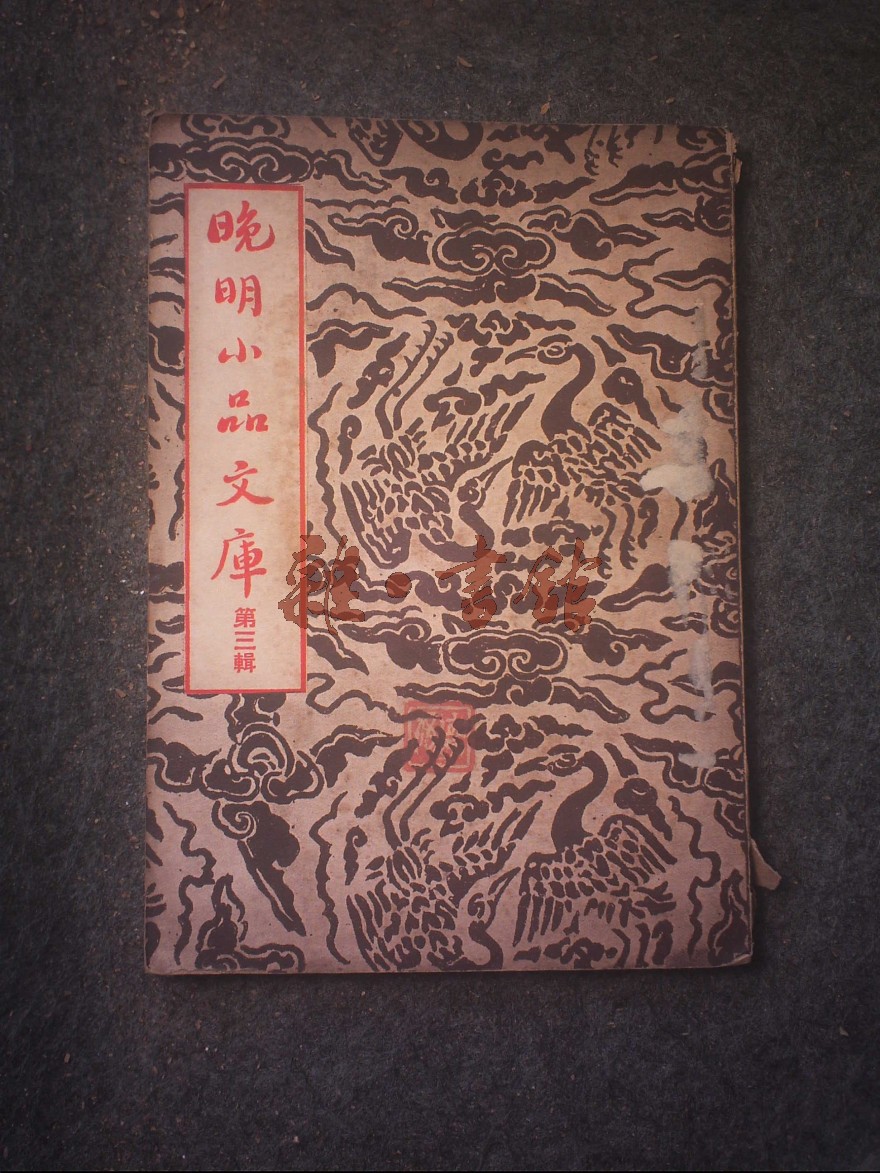 晚明小品文庫
第三輯
雜·書館